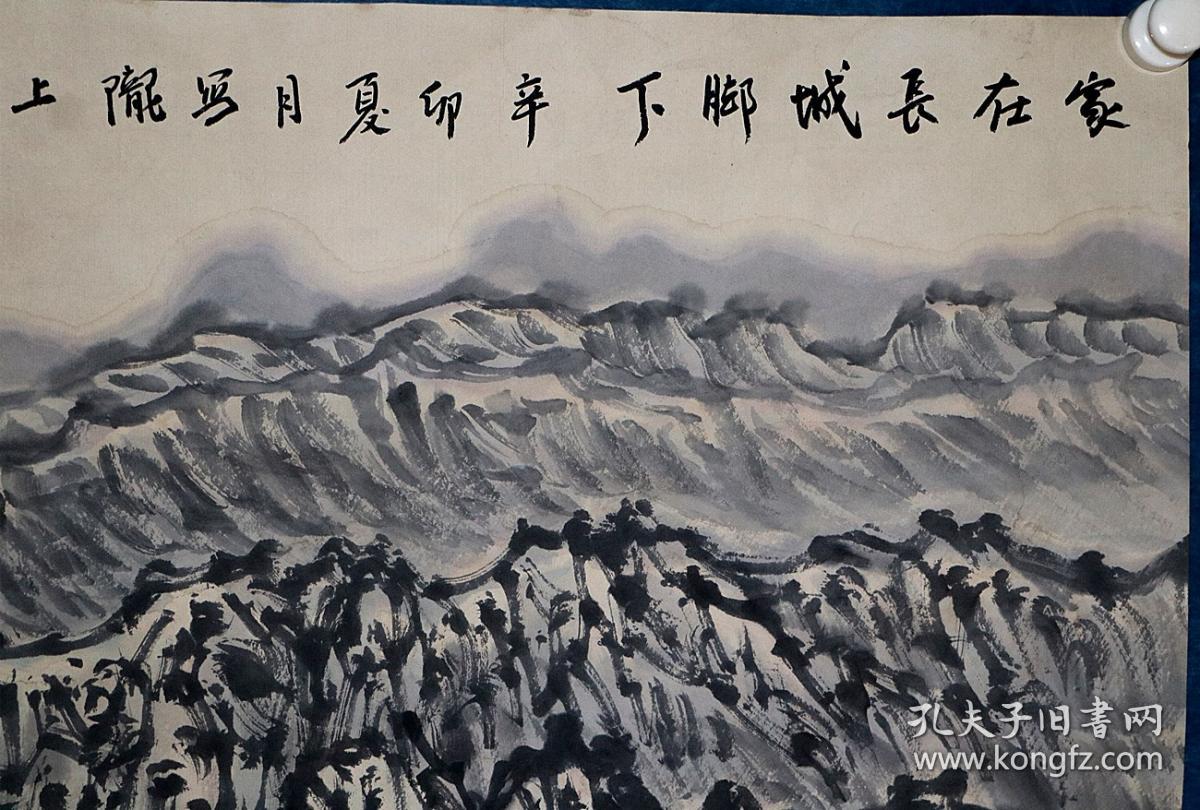 家在長城脚下 辛卯夏月写隴上
孔夫子旧書网
www.kongfz.com